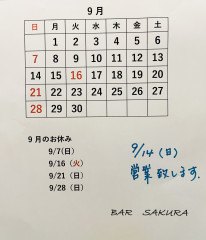 9月
日 月 火 水 木 金 土
1 2 3 4 5 6
7 8 9 10 11 12 13
14 15 16 17 18 19 20
21 22 23 24 25 26 27
28 29 30
9月のお休み
9/7(日)
9/16(火)
9/21(日)
9/28(日)
9/14(日)
営業致します。
BAR SAKURA